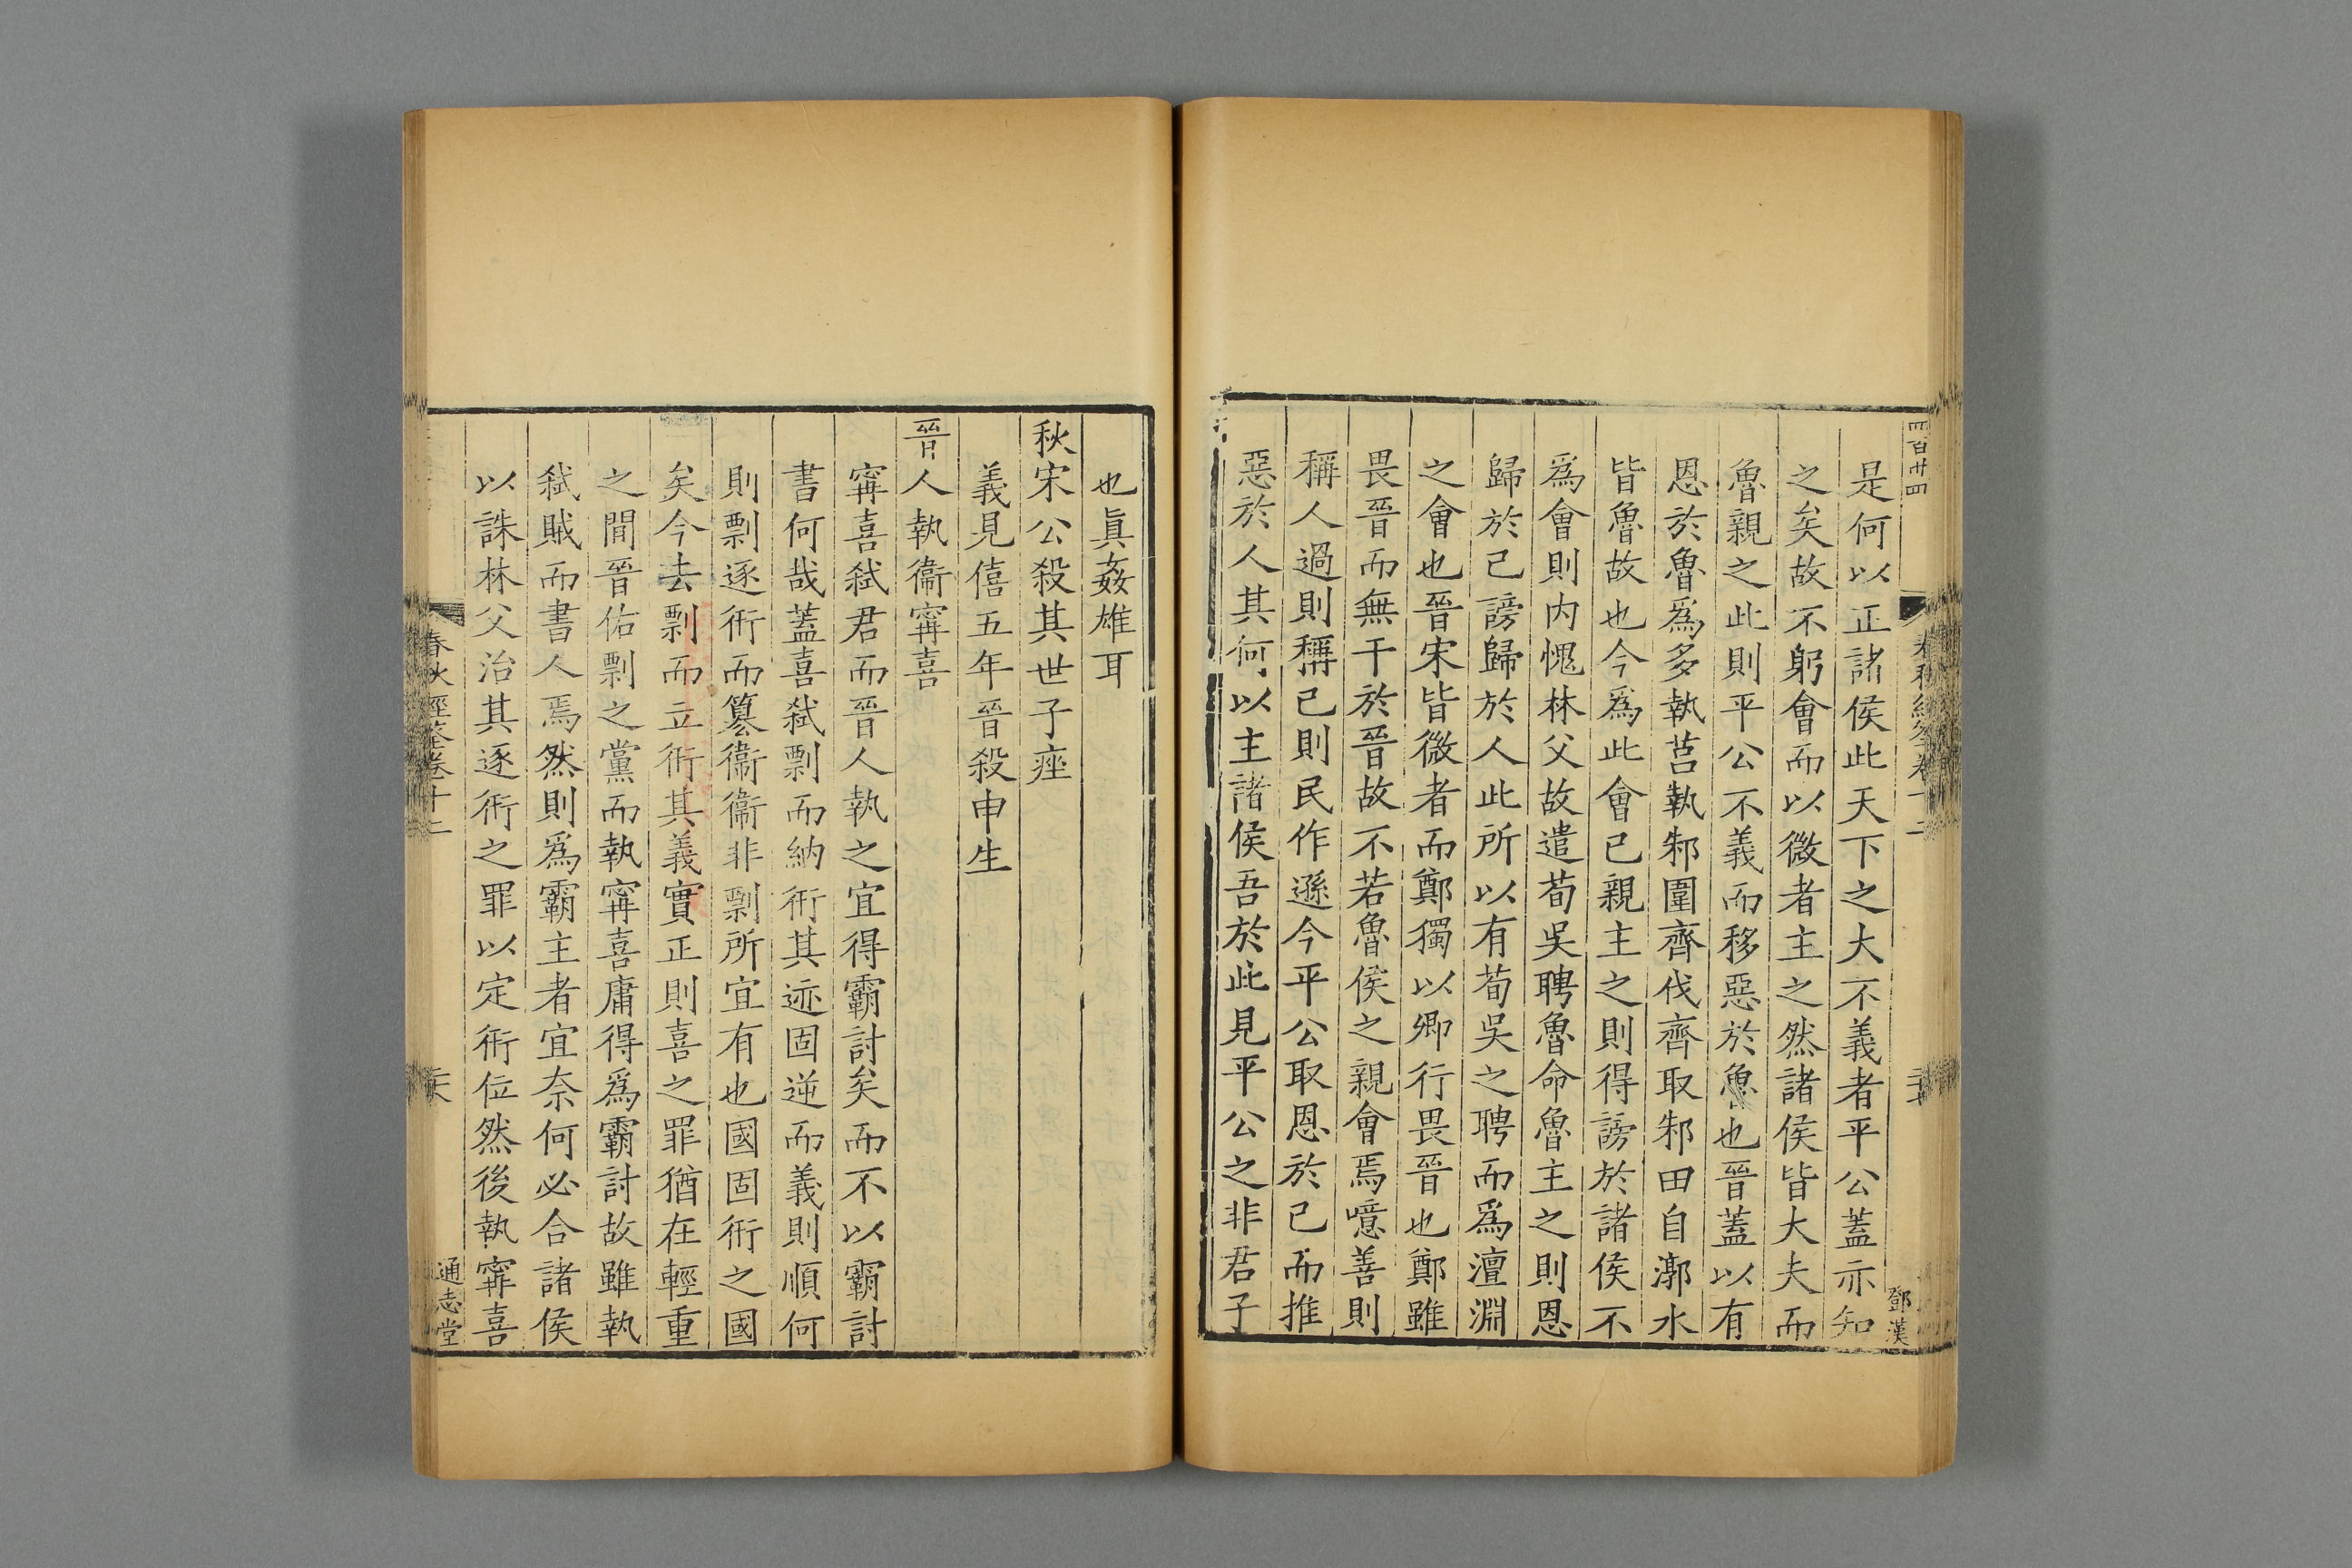 四百卄四
是何以正諸侯此天下之大不義者平公蓋亦知
之矣故不躬會而以微者主之然諸侯皆大夫而
魯親之此則平公不義而移惡於魯也晉蓋以有
恩於魯爲多執莒執邾圍齊伐齊取邾田自漷水
皆魯故也今爲此會已親主之則得謗於諸侯不
爲會則内愧林父故遣荀吳聘魯命魯主之則恩
歸於已謗歸於人此所以有荀吳之聘而爲澶淵
之會也晉宋皆微者而鄭獨以卿行畏晉也鄭雖
畏晉而無干於晉故不若魯侯之親會焉噫善則
稱人過則稱已則民作遜今平公取恩於已而推
惡於人其何以主諸侯吾於此見平公之非君子
鄧漢
也眞姦雄耳
秋宋公殺其世子痤
義見僖五年晉殺申生
晉人執衞甯喜
甯喜弑君而晉人執之宜得霸討矣而不以霸討
書何哉蓋喜弑剽而納衎其迹固逆而義則順何
則剽逐衎而簒衞衞非剽所宜有也國固衎之國
矣今去剽而立衎其義實正則喜之罪猶在輕重
之間晉佑剽之黨而執甯喜庸得爲霸討故雖執
弑賊而書人焉然則爲霸主者宜奈何必合諸侯
以誅林父治其逐衎之罪以定衎位然後執甯喜
春秋經筌卷十二
通志堂